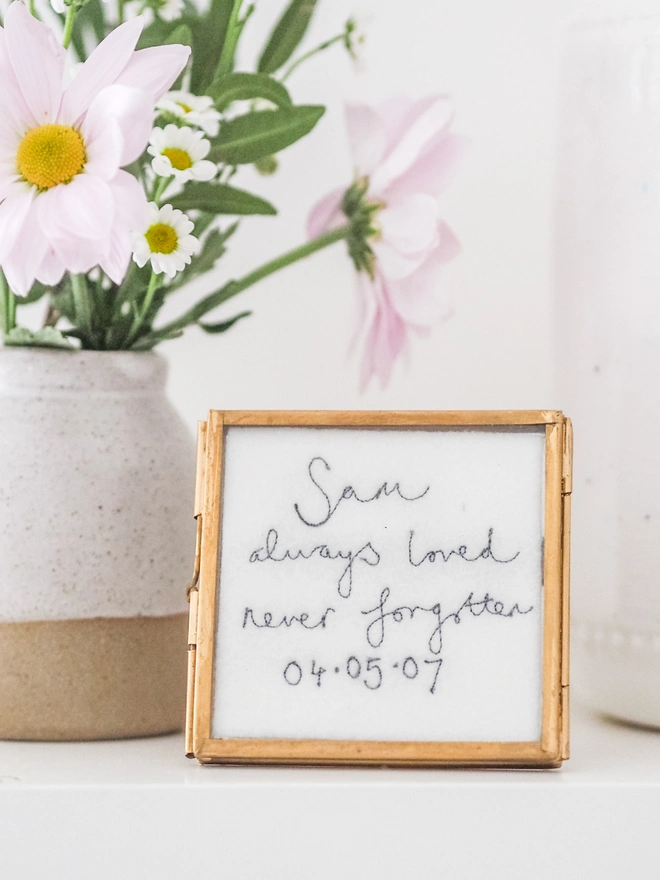 Sam
always loved
never forgotten
04·05·07